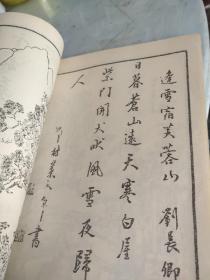 逢雪宿芙蓉山 劉長卿
日暮蒼山遠天寒白屋
柴门闻犬吠風雪夜歸
人
书